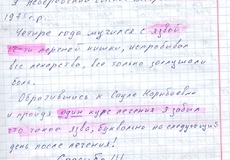 1975 г.р.
Четыре года мучился с язвой
12-ти перстной кишки, испробовал
все лекарства, все только заглушали
боль.
Обратившись к Сауле
и пройдя один курс лечения я забыл
что такое язва, буквально на следующий
день после лечения!
Спасибо !!!